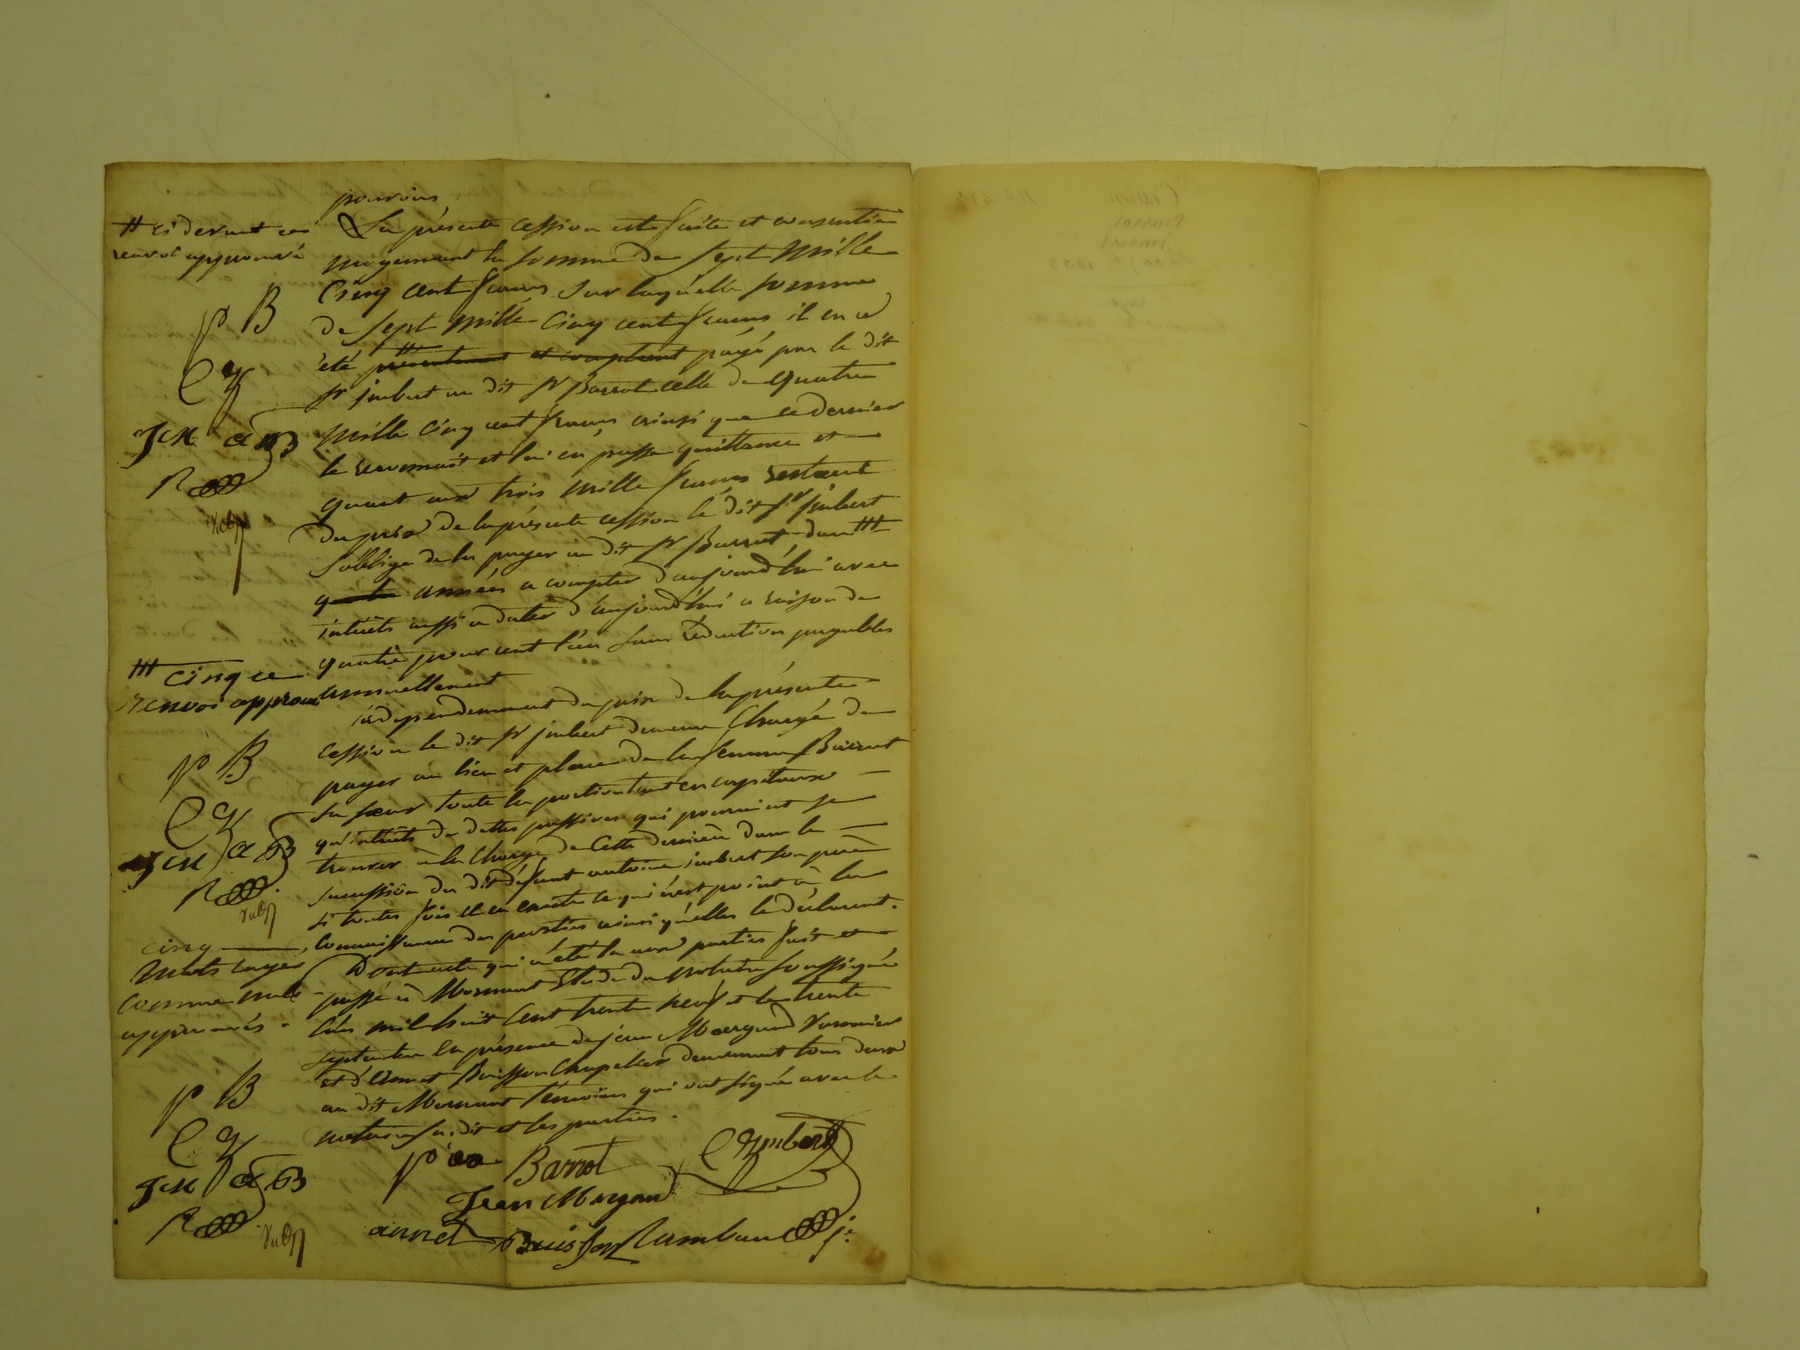 pouvoirs
La présente cession est faite et consentie
moyennant la somme de Sept Mille
Cinq cent francs sur laquelle somme
de Sept Mille Cinq cent francs il en a
été présentement et comptant payé par le dit
Sr imbert au dit Sr Barrot celle de Quatre
Mille Cinq cent francs ainsi que ce dernier
le reconnait et lui en passe quittance et
quant aux trois Mille francs restant
du prix de la présente cession le dit Sr imbert
s'oblige de les payer au dit Sr Barrot dans ###
années a compter d'aujourd'hui avec
intérêts aussi a dater d'aujourd'hui a raison de
quatre pour cent l'an sans réduction payables
annuellement
indépendemment du prix de la présente
cession le dit Sr imbert demeure Chargé de
payer au lieu et place de la femme Barrot
sa sœur toute la portion tant en capitaux
qu'intérêts de dettes passives qui pourraient se
trouver à la Charge de cette dernière dans la
succession du dit défunt antoine imbert son père
si toutes fois il en existe ce qui n'est point à la
Connaissance des parties ainsi qu'elles le déclarent.
Dont acte qui a été lu aux parties fait et
passé à Mornant Etude du notaire soussigné
l'an mil huit Cent trente neuf et le trente
septembre en présence de jean Margand
et d'annet Buisson Chapelier demeurant tous deux
au dit Mornant témoins qui ont signé avec le
notaire su.dit et les parties.
Barrot
C Imbert
Jean Margand
annet Buisson
## ci devant ce
renvoi approuvé
P B
C I
JcM a B
R
### cinq ce
renvoi approuvé
P B
C I
JcM a B
R
cinq
Mots rayés
comme nuls
approuvés.
P B
C I
JcM a B
R